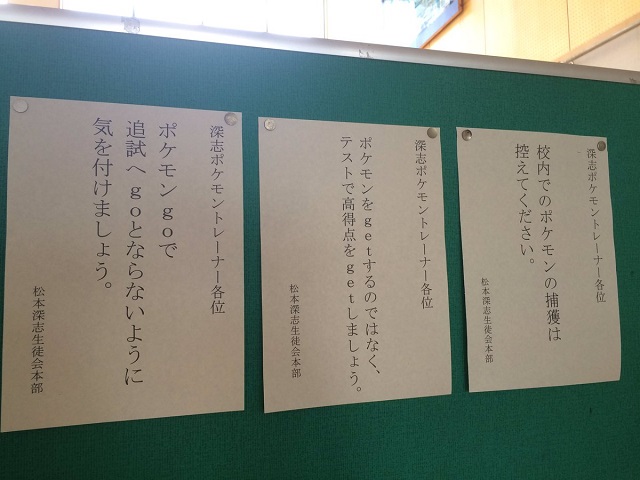 深志ポケモントレーナー各位
校内でのポケモンの捕獲は
控えてください。
松本深志生徒会本部
深志ポケモントレーナー各位
ポケモンをgetするのではなく、
テストで高得点をgetしましょう。
松本深志生徒会本部
深志ポケモントレーナー各位
ポケモンgoで
追試へgoとならないように
気を付けましょう。
松本深志生徒会本部